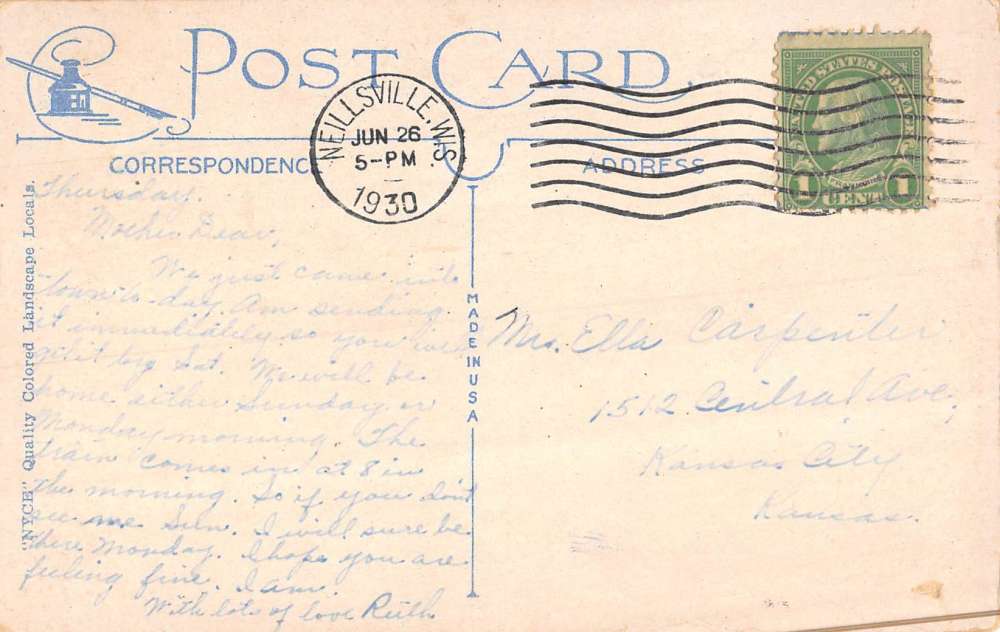 POST CARD.
NEILLSVILLE, WIS.
JUN 26
5-PM
1930
UNITED STATES POSTAGE
1 CENT 1
CORRESPONDENCE
ADDRESS
"NYCE" Quality Colored Landscape Locals.
MADE IN USA
Thursday.
Mother Dear,
We just came into
town to-day. Am sending
it immediately so you will
get it by Sat. We will be
home either Sunday or
Monday morning. The
train comes in at 8 in
the morning. So if you don't
see me Sun. I will sure be
there Monday. I hope you are
feeling fine. I am.
With lots of love Ruth
Mrs. Ella Carpenter
1512 Central Ave,
Kansas City
Kansas.